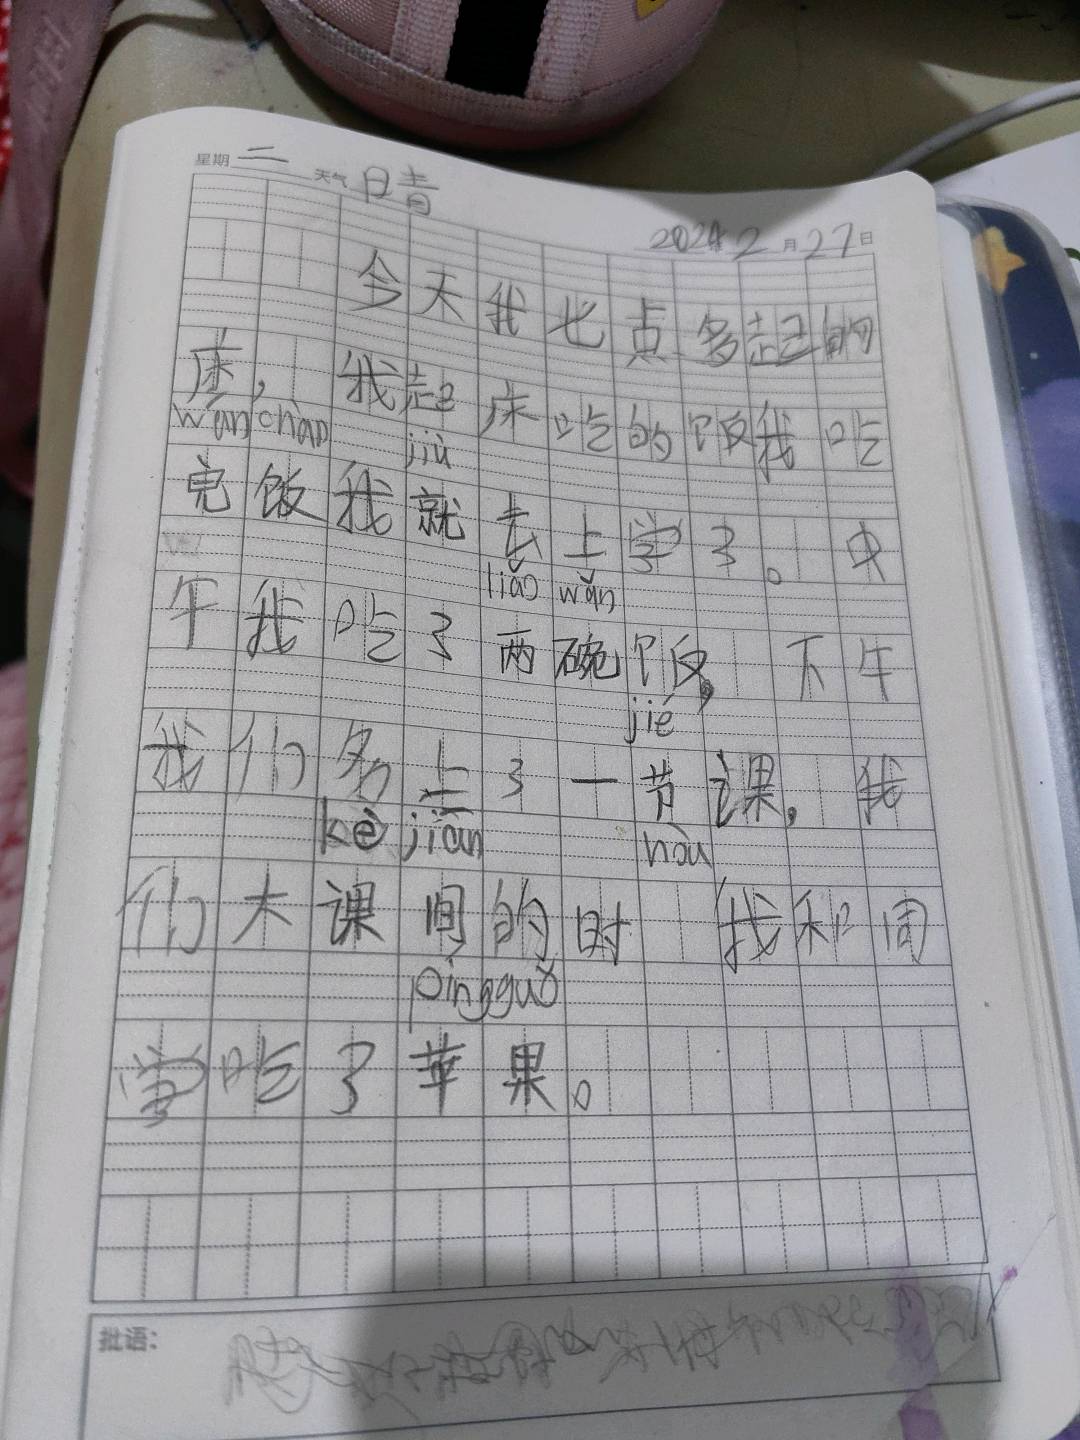 星期 二 天气 晴
2024年2月27日
今天我七点多起的
床，我起床吃的饭我吃
wán chǎo jiù
完饭我就去上学了。中
liǎo wǎn
午我吃了两碗饭，下午
jié
我们多上了一节课，我
kè jiān hòu
们大课间的时 我和同
píng guǒ
学吃了苹果。
批语：